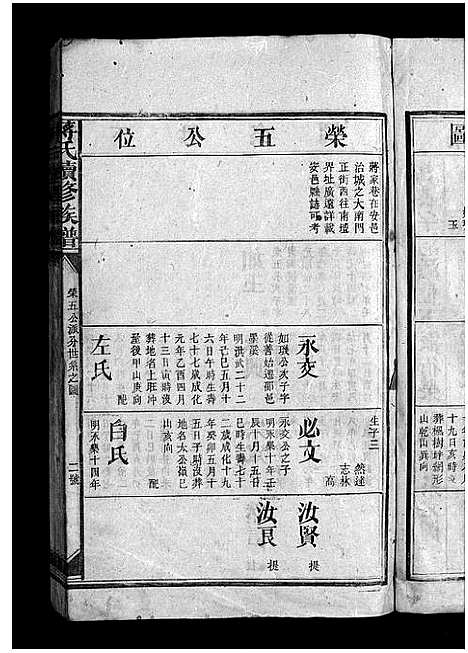 圖
玉
十九日亥時
葬楓樹坪蜘形
山乾山巽向
榮五公位
蔣家巷在安邑
治城之大南門
正街西往南壇
界址廣遠詳載
安邑縣誌可考
永交
如璣公次子字
從善始遷邵邑
墨溪
明洪武二十二
年己巳五月十
六日午時生壽
七十七歲成化
元年乙酉四月
十三日寅時沒
葬地名上班冲
屋後甲山庚向
配
左氏
生子三
然達
志林
高
必文
永交公之子
明永樂十年壬
辰十月十五日
巳時生壽七十
二歲成化十九
年癸卯五月十
五日子時沒葬
地名太公嶺巳
山亥向
配
白氏
明永樂十四年
汝賢
提
汝良
提
蔣氏續修族譜
榮五公派分世系之圖
二號